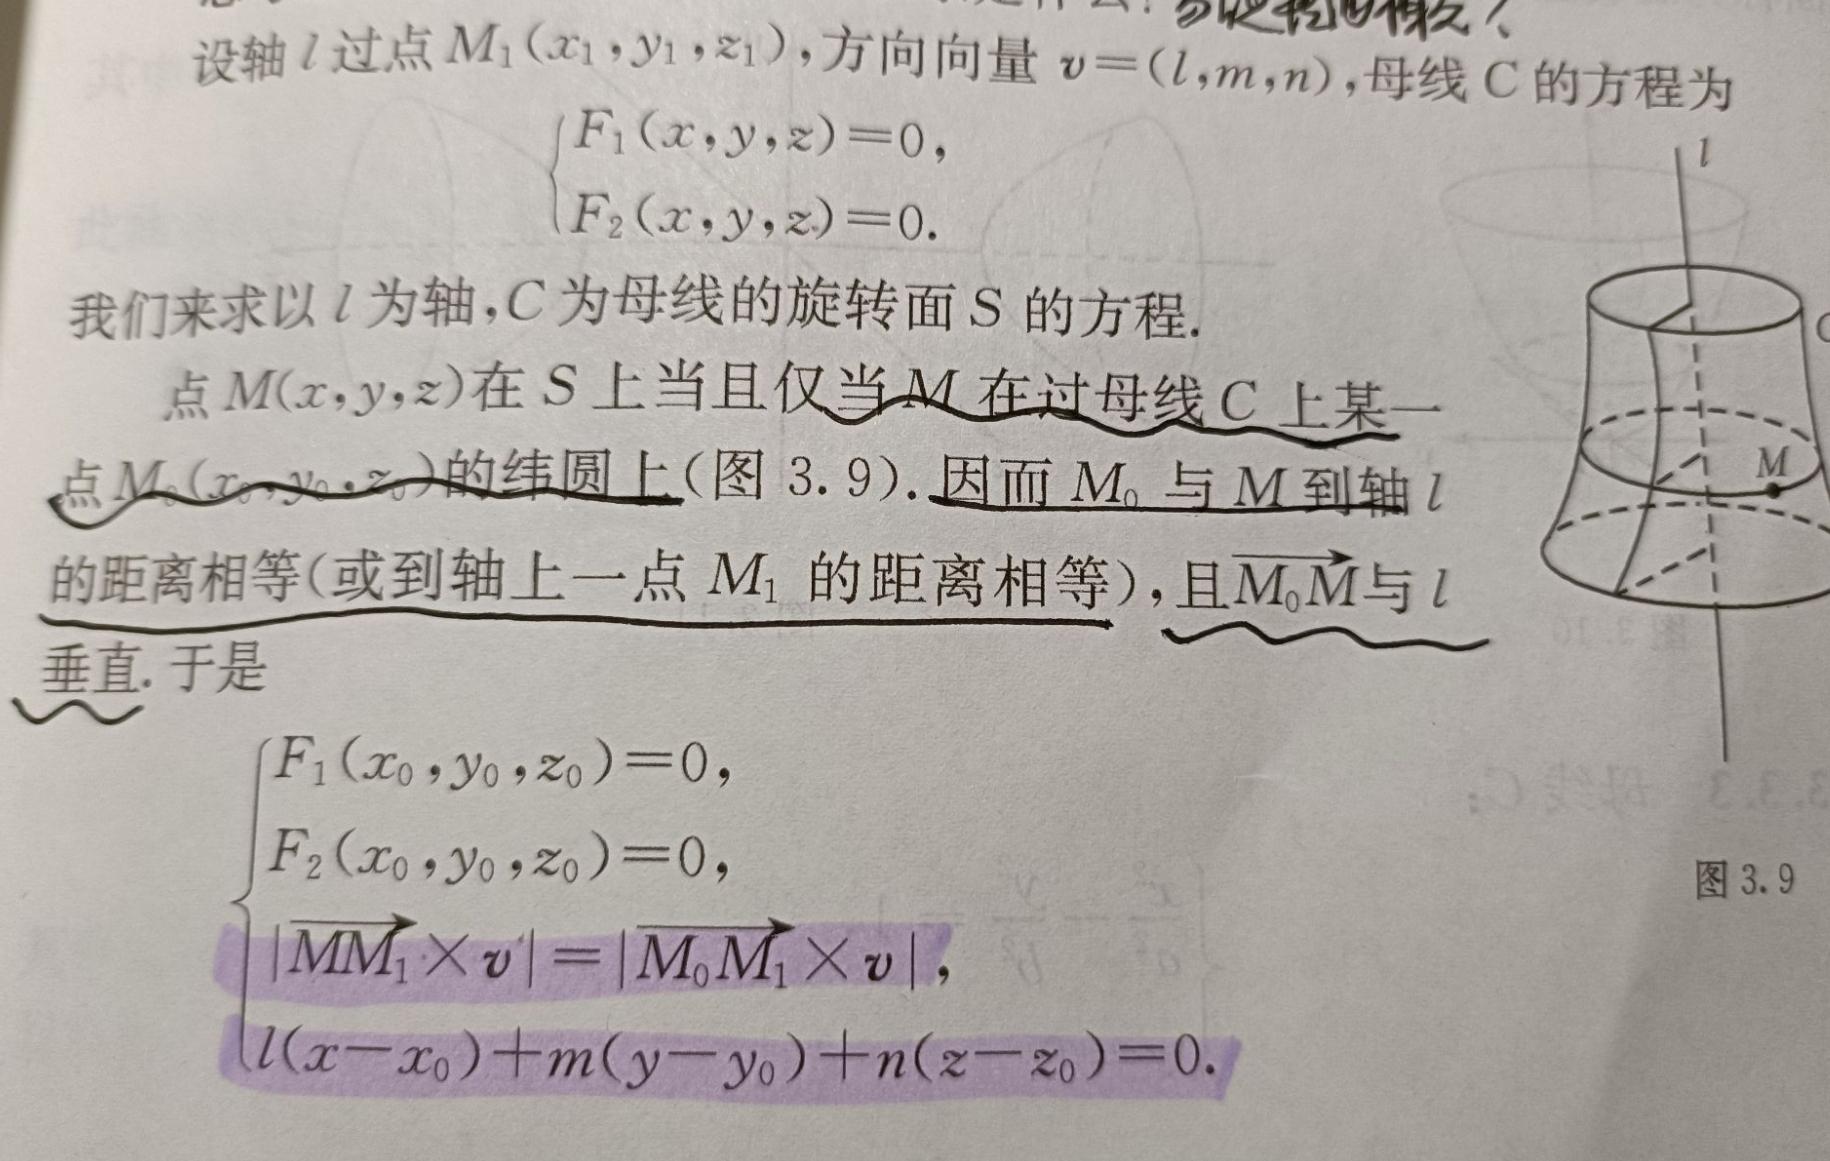 设轴 l 过点 M₁(x₁,y₁,z₁),方向向量 v=(l,m,n),母线 C 的方程为
F₁(x,y,z)=0,
F₂(x,y,z)=0.
l
我们来求以 l 为轴,C 为母线的旋转面 S 的方程.
点 M(x,y,z)在 S 上当且仅当 M 在过母线 C 上某一
点 M₀(x₀,y₀,z₀)的纬圆上(图 3.9).因而 M₀ 与 M 到轴 l
M
的距离相等(或到轴上一点 M₁ 的距离相等),且M₀M与 l
垂直.于是
F₁(x₀,y₀,z₀)=0,
F₂(x₀,y₀,z₀)=0,
图 3.9
|MM₁×v|=|M₀M₁×v|,
l(x-x₀)+m(y-y₀)+n(z-z₀)=0.